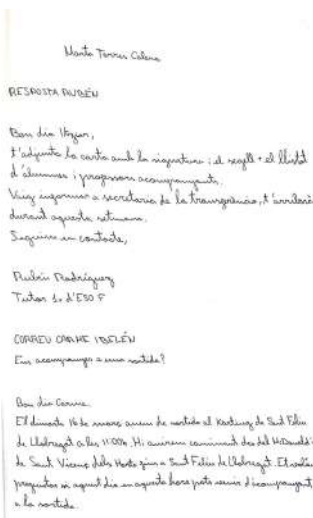 Marta Torres Calero
RESPOSTA RUBÉN
Bon dia Itziar,
t'adjunto la carta amb la signatura i el segell + el llistat
d'alumnes i professors acompanyants.
Vaig informar a secretaria de la transferència, t'arribarà
durant aquesta setmana.
Seguim en contacte,
Rubén Rodríguez
Tutor 1r d'ESO F
CORREU CARME I BELÉN
Ens acompanyes a una sortida?
Bon dia Carme.
El dimarts 16 de març anem de sortida al Karting de Sant Feliu
de Llobregat a les 11:00h. Hi anirem caminant des del McDonald's
de Sant Vicenç dels Horts fins a Sant Feliu de Llobregat. Et volia
preguntar si aquest dia en aquesta hora pots venir d'acompanyant
a la sortida.